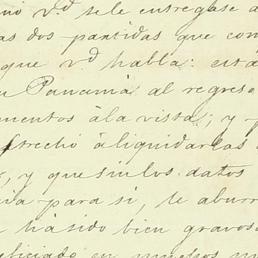 no v.d se le entregase a
as dos partidas que com
que v.d habla: está
u Panamá al regreso
umentos á la vista; y p
strechó á liquidarlas
, y que sin los datos
ida para sí, le aburr
ha sido bien gravos
eficiado en muchos m